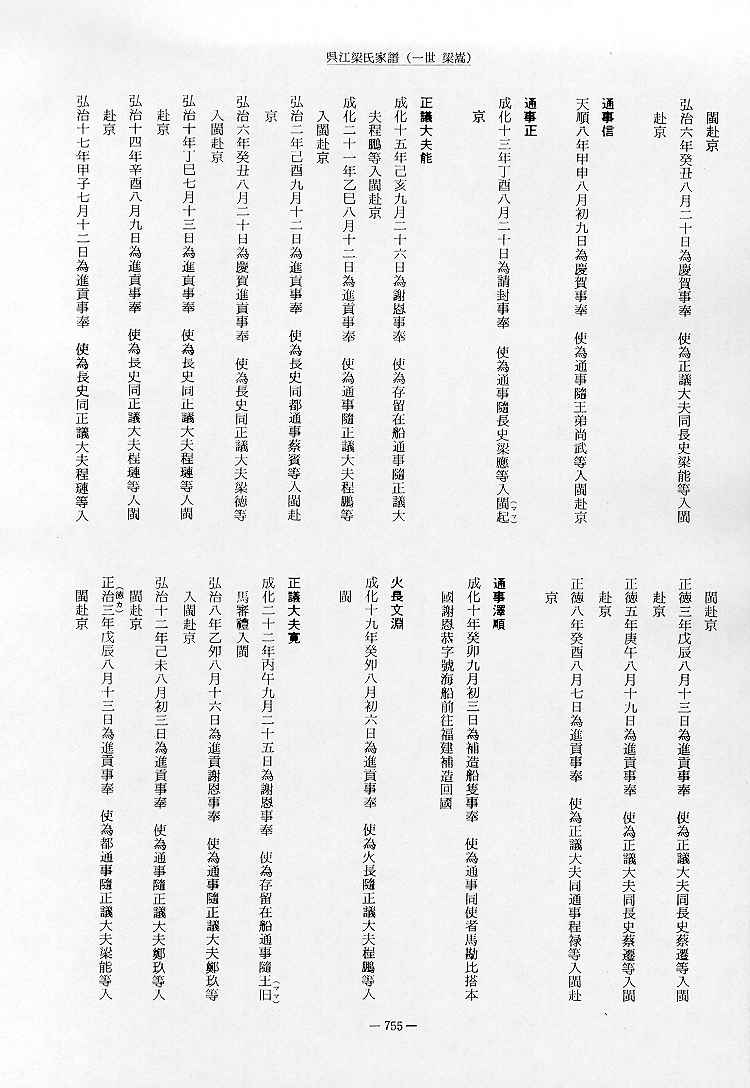 呉江梁氏家譜（一世 梁嵩）
閩赴京
弘治六年癸丑八月二十日為慶賀事奉　使為正議大夫同長史梁能等入閩
赴京
通事信
天順八年甲申八月初九日為慶賀事奉　使為通事隨王弟尚武等入閩赴京
通事正
成化十三年丁酉八月二十日為請封事奉　使為通事隨長史梁應等入閩起（ママ）
京
正議大夫能
成化十五年己亥九月二十六日為謝恩事奉　使為存留在船通事隨正議大
夫程鵬等入閩赴京
成化二十一年乙巳八月十二日為進貢事奉　使為通事隨正議大夫程鵬等
入閩赴京
弘治二年己酉九月十二日為進貢事奉　使為長史同都通事蔡賓等入閩赴
京
弘治六年癸丑八月二十日為慶賀進貢事奉　使為長史同正議大夫梁徳等
入閩赴京
弘治十年丁巳七月十三日為進貢事奉　使為長史同正議大夫程璉等入閩
赴京
弘治十四年辛酉八月九日為進貢事奉　使為長史同正議大夫程璉等入閩
赴京
弘治十七年甲子七月十二日為進貢事奉　使為長史同正議大夫程璉等入
閩赴京
正徳三年戊辰八月十三日為進貢事奉　使為正議大夫同長史蔡遷等入閩
赴京
正徳五年庚午八月十九日為進貢事奉　使為正議大夫同長史蔡遷等入閩
赴京
正徳八年癸酉八月七日為進貢事奉　使為正議大夫同通事程禄等入閩赴
京
通事澤順
成化十年癸卯九月初三日為補造船隻事奉　使為通事同使者馬勘比搭本
國謝恩恭字號海船前往福建補造回國
火長文淵
成化十九年癸卯八月初六日為進貢事奉　使為火長隨正議大夫程鵬等入
閩
正議大夫寛
成化二十二年丙午九月二十五日為謝恩事奉　使為存留在船通事隨王旧（ママ）
馬審禮入閩
弘治八年乙卯八月十六日為進貢謝恩事奉　使為通事隨正議大夫鄭玖等
入閩赴京
弘治十二年己未八月初三日為進貢事奉　使為通事隨正議大夫鄭玖等入
閩赴京
正治（徳カ）三年戊辰八月十三日為進貢事奉　使為都通事隨正議大夫梁能等入
閩赴京
— 755 —